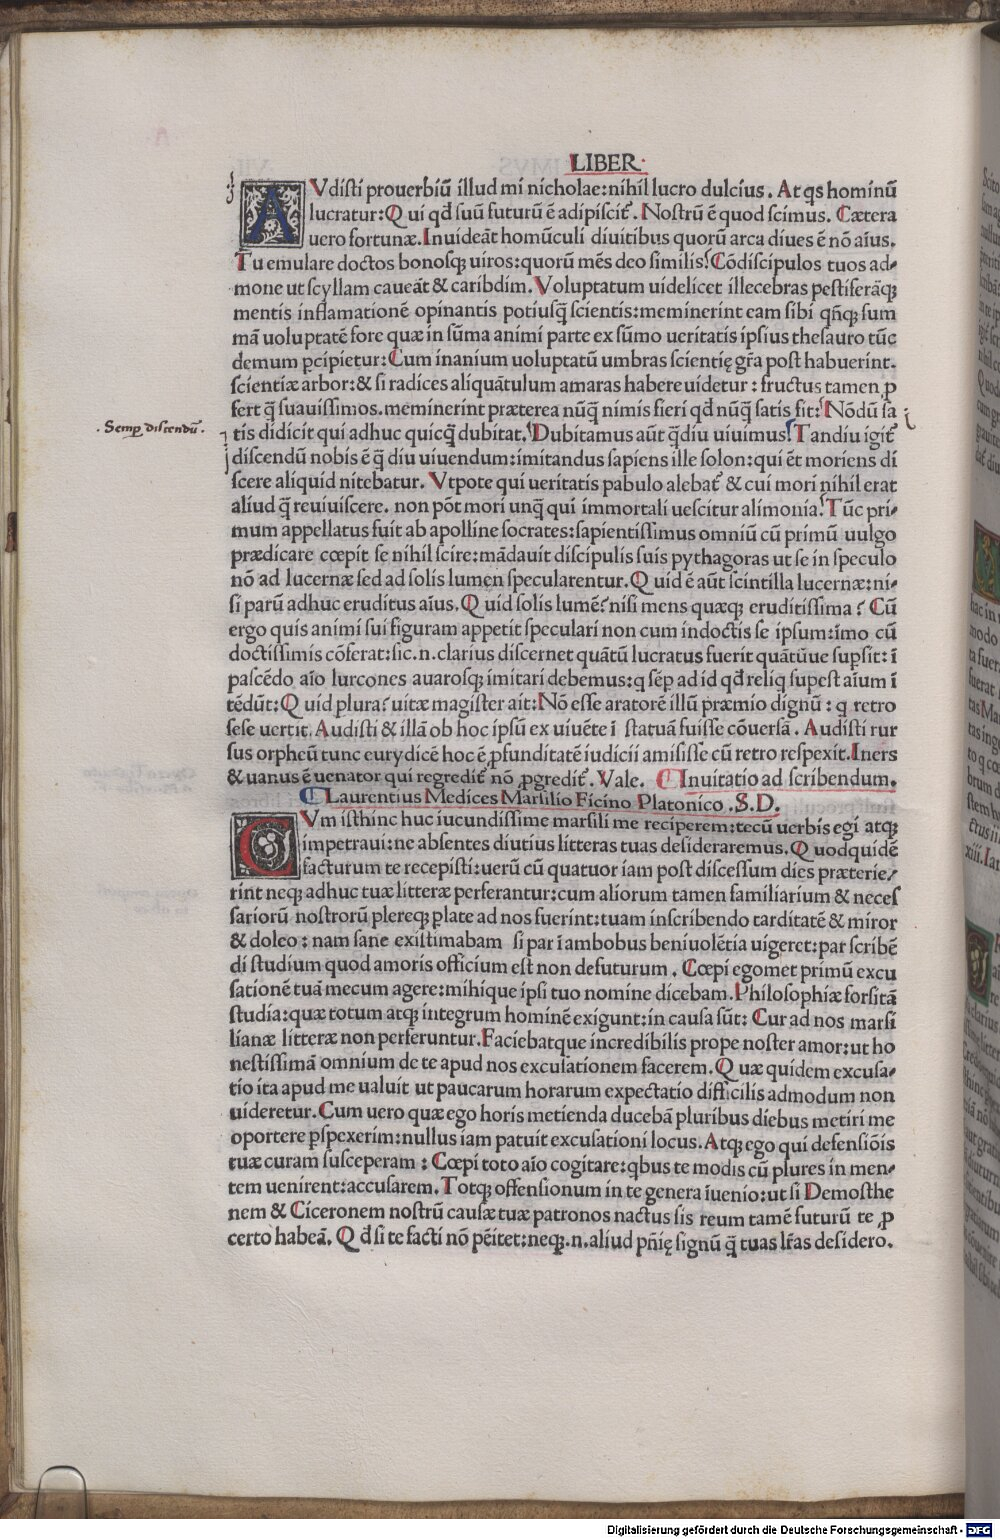 LIBER
AVdisti prouerbiū illud mi nicholae:nihil lucro dulcius. At qs hominū
lucratur:Qui qđ suū futurū ē adipiscit᷑. Nostrū ē quod scimus. Cætera
uero fortunæ. Inuideāt homūculi diuitibus quorū arca diues ē nō aīus.
Tu emulare doctos bonosq; uiros:quorū mēs deo similis. Cōdiscipulos tuos ad-
mone ut scyllam caueāt & caribdim. Voluptatum uidelicet illecebras pestiferāq;
mentis inflamationē opinantis potiusq̄ scientis:meminerint eam sibi qn̄q; sum
mā uoluptatē fore quæ in sūma animi parte ex sūmo ueritatis ipsius thesauro tūc
demum ꝑcipietur: Cum inanium uoluptatū umbras scientię gr̄a post habuerint.
scientiæ arbor:& si radices aliquātulum amaras habere uidetur : fructus tamen ꝓ
fert q̄ suauissimos. meminerint præterea nūq̄ nimis fieri qđ nūq̄ satis fit: Nōdū sa
. Semꝑ discendū .
tis didicit qui adhuc quicq̄ dubitat. Dubitamus aūt q̄diu uiuimus. Tandiu igit᷑
discendū nobis ē q̄ diu uiuendum:imitandus sapiens ille solon:qui ēt moriens di
scere aliquid nitebatur. Vtpote qui ueritatis pabulo alebat᷑ & cui mori nihil erat
aliud q̄ reuiuiscere. non pōt mori unq̄ qui immortali uescitur alimonia. Tūc pri-
mum appellatus fuit ab apolline socrates:sapientissimus omniū cū primū uulgo
prædicare cœpit se nihil scire:mādauit discipulis suis pythagoras ut se in speculo
nō ad lucernæ sed ad solis lumen specularentur. Quid ē aūt scintilla lucernæ:ni-
si parū adhuc eruditus aīus. Quid solis lumē? nisi mens quæq; eruditissima? Cū
ergo quis animi sui figuram appetit speculari non cum indoctis se ipsum:imo cū
doctissimis cōferat:sic.n.clarius discernet quātū lucratus fuerit quātūue suꝑsit: ī
pascēdo aīo lurcones auarosq; imitari debemus:q sēꝑ ad id qđ reliq supest aīum ī
tēdūt: Quid plura? uitæ magister ait: Nō esse aratorē illū præmio dignū : q retro
sese uertit. Audisti & illā ob hoc ipsū ex uiuēte ī statuā fuisse cōuersā. Audisti rur
sus orpheū tunc eurydicē hoc ē ꝓfunditatē iudicii amisisse cū retro respexit. Iners
& uanus ē uenator qui regredit᷑ nō ꝓgredit᷑. Vale. ¶ Inuitatio ad scribendum.
¶ Laurentius Medices Marsilio Ficino Platonico .S.D.
CVm isthinc huc iucundissime marsili me reciperem:tecū uerbis egi atq;
impetraui:ne absentes diutius litteras tuas desideraremus. Quodquidē
facturum te recepisti:uerū cū quatuor iam post discessum dies præterie/
rint neq; adhuc tuæ litteræ perferantur:cum aliorum tamen familiarium & neces
sariorū nostrorū plereq; plate ad nos fuerint:tuam inscribendo tarditatē & miror
& doleo : nam sane existimabam si par ī ambobus beniuolētia uigeret:par scribē
di studium quod amoris officium est non defuturum . Cœpi egomet primū excu
sationē tuā mecum agere:mihique ipsi tuo nomine dicebam. Philosophiæ forsitā
studia:quæ totum atq; integrum hominē exigunt:in causa sūt: Cur ad nos marsi
lianæ litteræ non perferuntur. Faciebatque incredibilis prope noster amor:ut ho
nestissimā omnium de te apud nos exculationem facerem. Quæ quidem excusa-
tio ita apud me ualuit ut paucarum horarum expectatio difficilis admodum non
uideretur. Cum uero quæ ego horis metienda ducebā pluribus diebus metiri me
oportere ꝑspexerim:nullus iam patuit excusationi locus. Atq; ego qui defensiōis
tuæ curam susceperam : Cœpi toto aīo cogitare:qbus te modis cū plures in men-
tem uenirent:accusarem. Totq; offensionum in te genera īuenio:ut si Demosthe
nem & Ciceronem nostrū causæ tuæ patronos nactus sis reum tamē futurū te ꝓ
certo habeā. Qđ si te facti nō pēitet:neq;.n.aliud pn̄ię signū q̄ tuas lr̄as desidero.
Digitalisierung gefördert durch die Deutsche Forschungsgemeinschaft - DFG